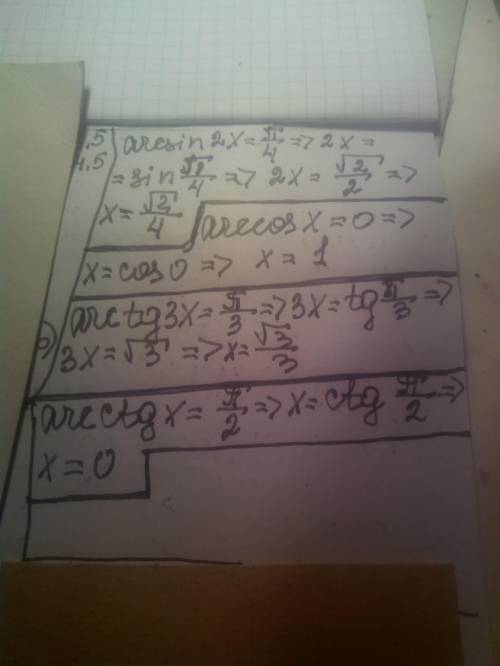 .5 arcsin 2x = π/4 => 2x =
4.5 = sin √2/4 => 2x = √2/2 =>
x = √2/4 arccos x = 0 =>
x = cos 0 => x = 1
arctg 3x = π/3 => 3x = tg π/3 =>
3x = √3 => x = √3/3
arcctg x = π/2 => x = ctg π/2 =>
x = 0